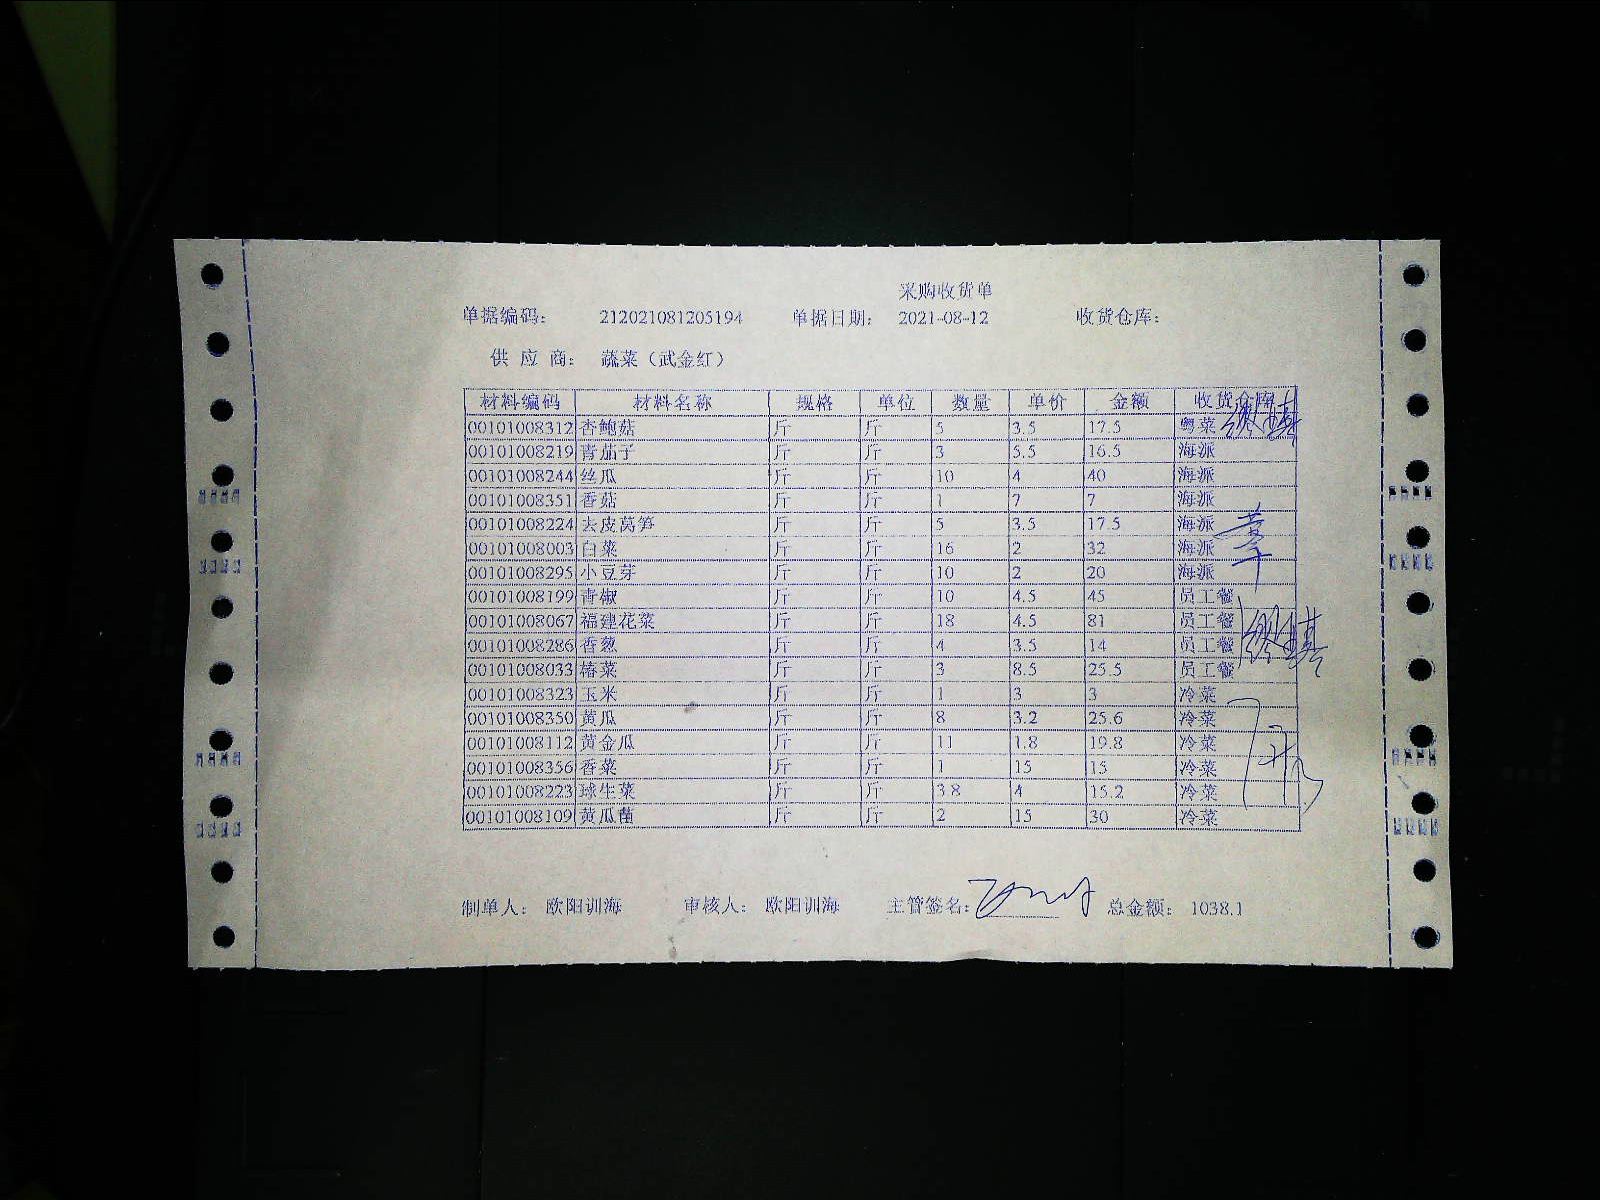 采购收货单
单据编码： 212021081205194 单据日期： 2021-08-12 收货仓库：
供 应 商： 蔬菜（武金红）
材料编码 材料名称 规格 单位 数量 单价 金额 收货仓库
00101008312 杏鲍菇 斤 斤 5 3.5 17.5 粤菜
00101008219 青茄子 斤 斤 3 5.5 16.5 海派
00101008244 丝瓜 斤 斤 10 4 40 海派
00101008351 香菇 斤 斤 1 7 7 海派
00101008224 去皮莴笋 斤 斤 5 3.5 17.5 海派
00101008003 白菜 斤 斤 16 2 32 海派
00101008295 小豆芽 斤 斤 10 2 20 海派
00101008199 青椒 斤 斤 10 4.5 45 员工餐
00101008067 福建花菜 斤 斤 18 4.5 81 员工餐
00101008286 香葱 斤 斤 4 3.5 14 员工餐
00101008033 椿菜 斤 斤 3 8.5 25.5 员工餐
00101008323 玉米 斤 斤 1 3 3 冷菜
00101008350 黄瓜 斤 斤 8 3.2 25.6 冷菜
00101008112 黄金瓜 斤 斤 11 1.8 19.8 冷菜
00101008356 香菜 斤 斤 1 15 15 冷菜
00101008223 球生菜 斤 斤 3.8 4 15.2 冷菜
00101008109 黄瓜苗 斤 斤 2 15 30 冷菜
制单人： 欧阳训海 审核人： 欧阳训海 主管签名： 总金额： 1038.1